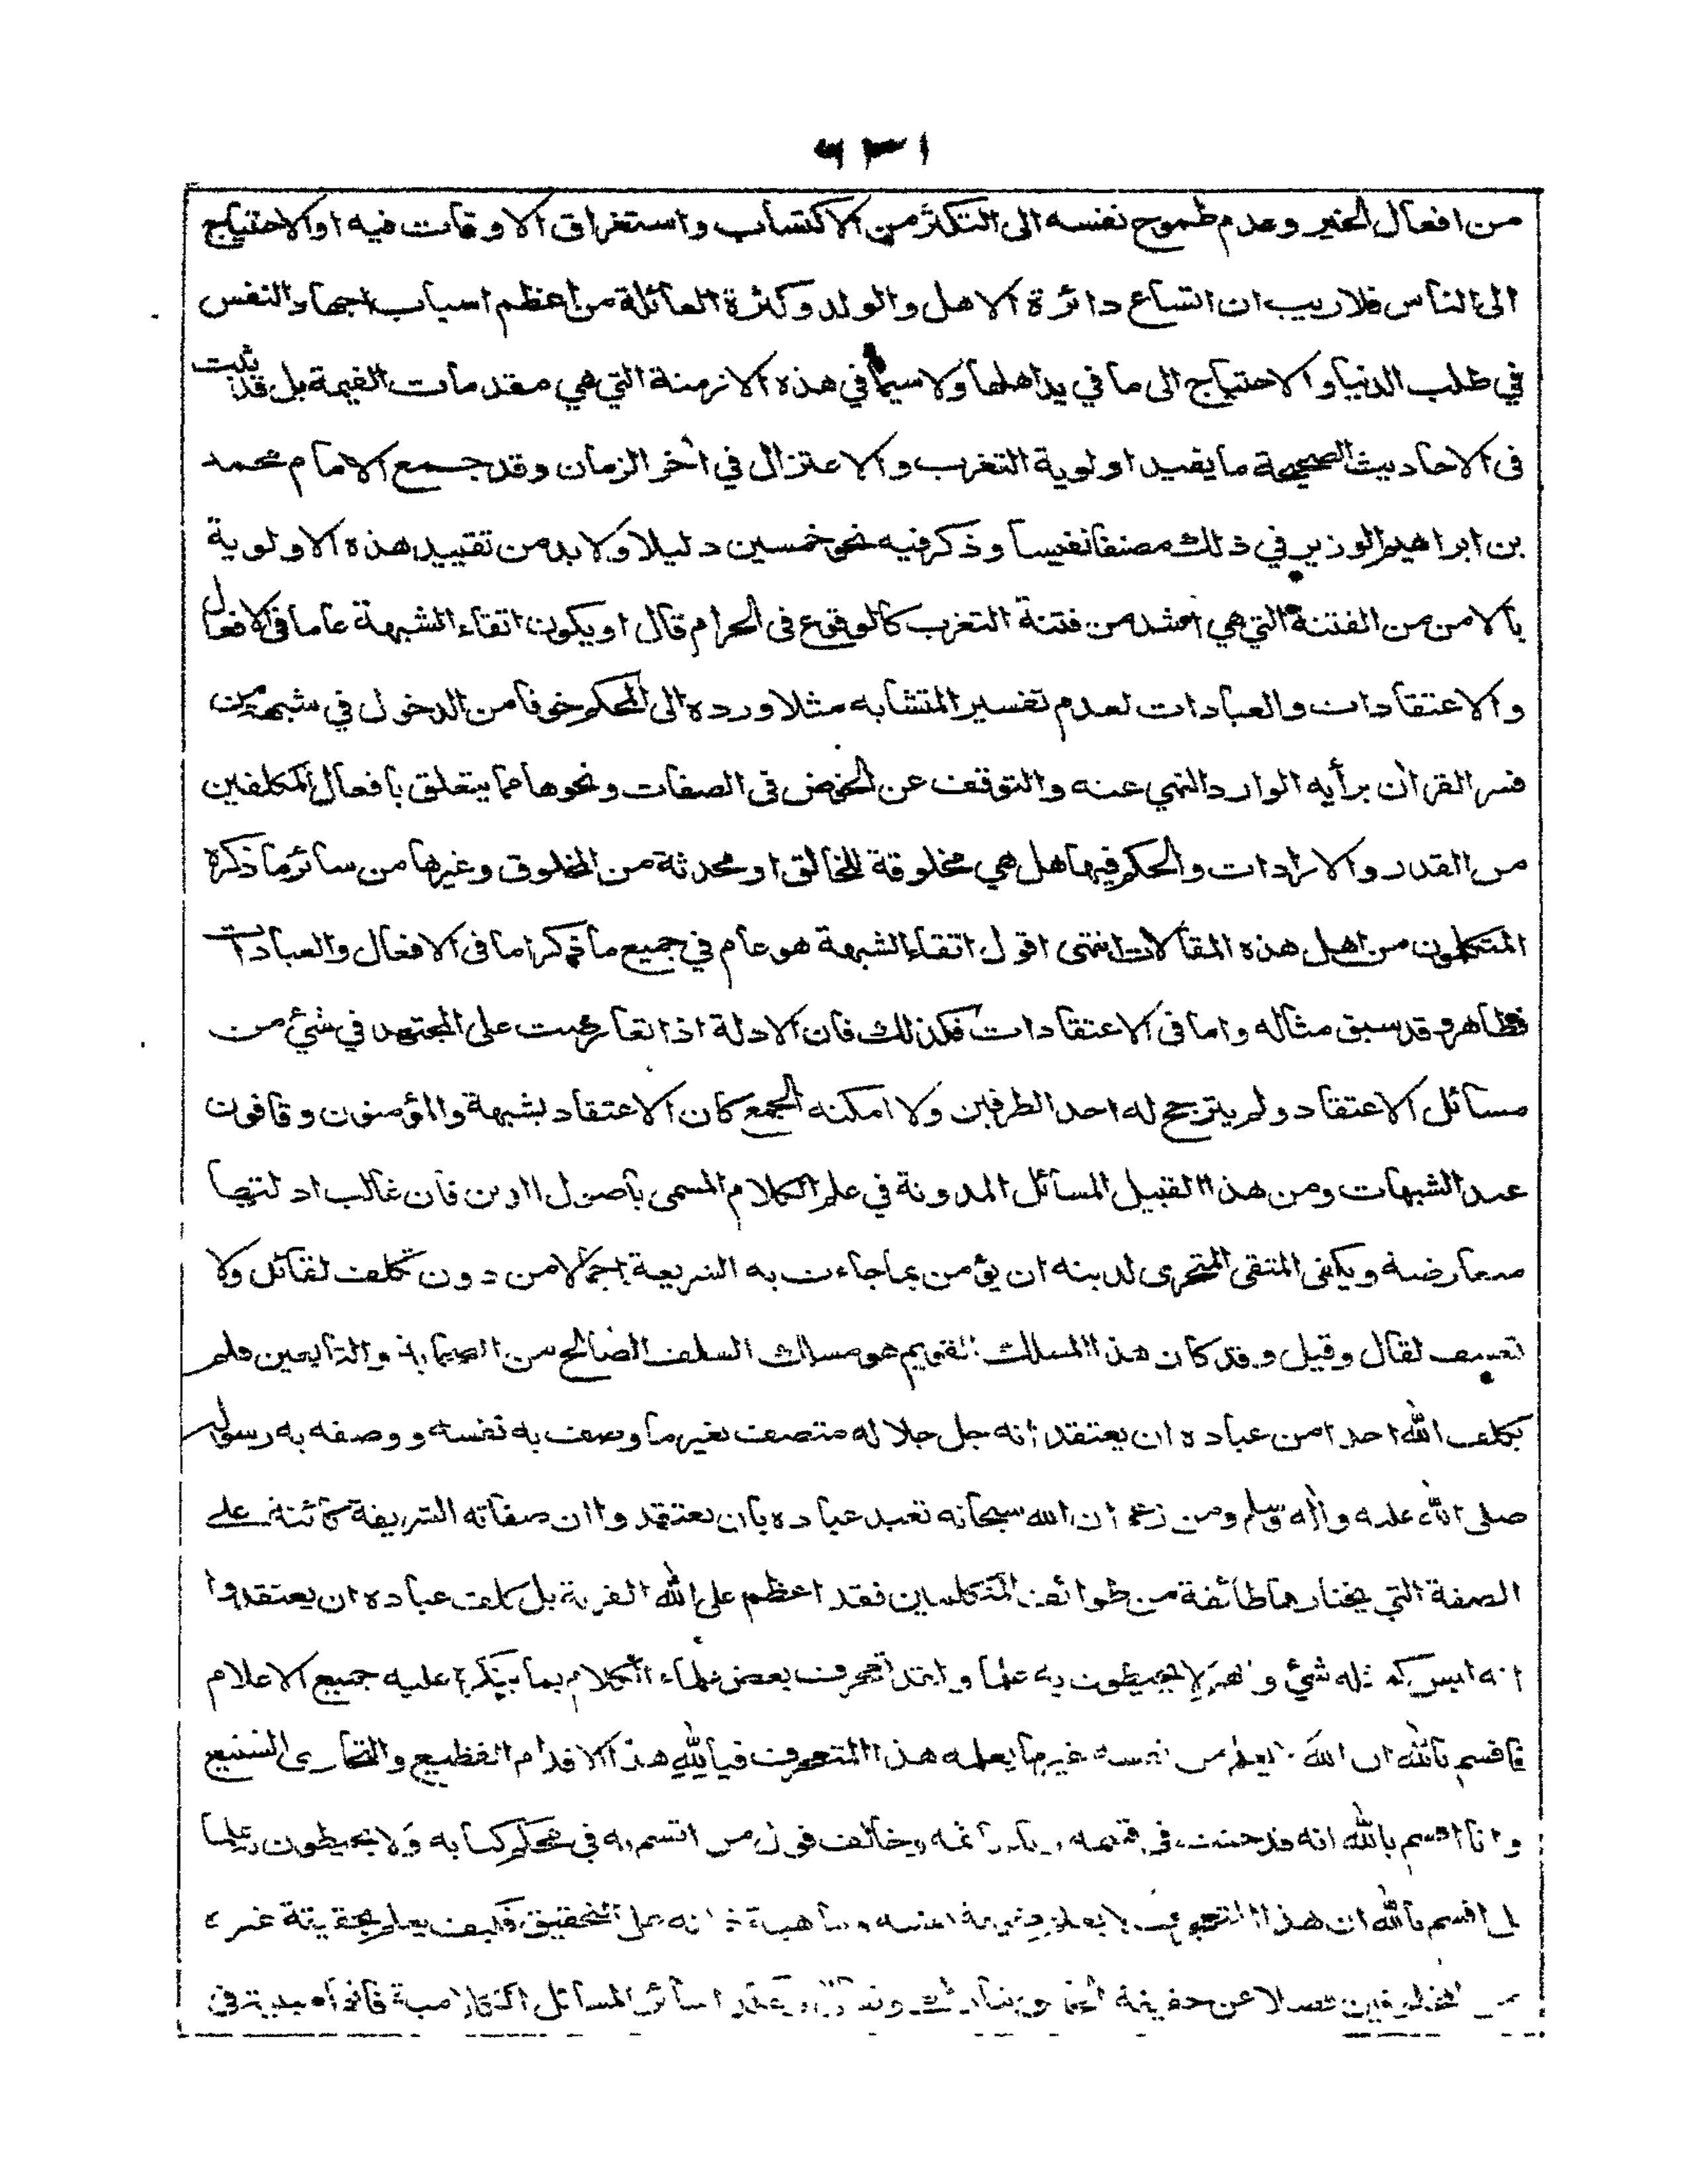 من افعال الخير وعدم طموح نفسه الى التكثر من الاكتساب واستغراق الاوقات فيه او الاحتياج
الى الناس فلا ريب ان اتساع دائرة الاهل والولد وكثرة العائلة من اعظم اسباب اجهاد النفس
في طلب الدنيا والاحتياج الى ما في يد اهلها ولا سيما في هذه الازمنة التي هي مقدمات القيمة بل قد ثبت
فى الاحاديث الصحيحة ما يفيد اولوية التغرب والاعتزال في اخر الزمان وقد جمع الامام محمد
بن ابراهيم الوزير في ذلك مصنفا نفيسا وذكر فيه نحو خمسين دليلا ولا بد من تقييد هذه الاولوية
بالامن من الفتنة التي هي اشد من فتنة التغرب كالوقوع فى الحرام قال او يكون اتقاء الشبهة عاما فى الافعال
والاعتقادات والعبادات لعدم تفسير المتشابه مثلا ورده الى المحكم خوفا من الدخول في شبهة من
فسر القرآن برأيه الوارد النهي عنه والتوقف عن الخوض فى الصفات ونحوها مما يتعلق بافعال المكلفين
من القدر والارادات والحكم فيها هل هي مخلوقة للخالق او محدثة من المخلوق وغيرها من سائر ما ذكره
المتكلمون من اهل هذه المقالات انتهى اقول اتقاء الشبهة هو عام في جميع ما ذكر اما فى الافعال والعبادات
فظاهر وقد سبق مثاله واما فى الاعتقادات فكذلك فان الادلة اذا تعارضت على المجتهد في شيء من
مسائل الاعتقاد ولم يترجح له احد الطرفين ولا امكنه الجمع كان الاعتقاد بشبهة والمؤمنون وقافون
عند الشبهات ومن هذا القبيل المسائل المدونة في علم الكلام المسمى باصول الدين فان غالب ادلتها
متعارضة ويكفى المتقى المتحرى لدينه ان يؤمن بما جاءت به الشريعة اجمالا من دون تكلف لقائل ولا
تعسف لقال وقيل وقد كان هذا المسلك القويم هو مسلك السلف الصالح من الصحابة والتابعين فلم
يكلف الله احدا من عباده ان يعتقد انه جل جلاله متصف بغير ما وصف به نفسه ووصفه به رسوله
صلى الله عليه وآله وسلم ومن زعم ان الله سبحانه تعبد عباده بان يعتقدوا ان صفاته الشريفة كائنة على
الصفة التي يختارها طائفة من طوائف المتكلمين فقد اعظم على الله الفرية بل كلف عباده ان يعتقدوا
انه ليس كمثله شيء و لا يحيطون به علما و تعجرف بعض علماء الكلام بما ينكره عليه جميع الاعلام
فاقسم بالله ان الله لا يعلم من نفسه غير ما يعلمه هذا المتعجرف فيا لله هذا الاقدام الفظيع والتجارى الشنيع
وانا اقسم بالله انه قد حنث فى قسمه وخالف قول من اقسم به في محكم كتابه ولا يحيطون به علما
بل اقسم بالله ان هذا المتعجرف لا يعلم حقيقة نفسه وماهية ذاته على التحقيق فكيف يعلم بحقيقة غيره
من المخلوقين فضلا عن حقيقة الخالق سائر المسائل الكلامية فانها مبنية فى